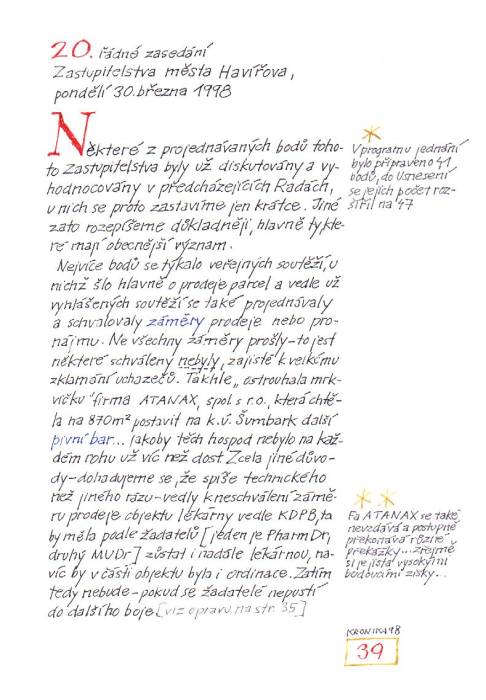 20. řádné zasedání
Zastupitelstva města Havířova,
pondělí 30. března 1998
Některé z projednávaných bodů toho-
to Zastupitelstva byly už diskutovány a vy-
hodnocovány v předcházejících Radách,
u nich se proto zastavíme jen krátce. Jiné
zato rozepíšeme důkladněji, hlavně ty, kte-
ré mají obecnější význam.
Nejvíce bodů se týkalo veřejných soutěží, u
nichž šlo hlavně o prodeje parcel a vedle už
vyhlášených soutěží se také projednávaly
a schvalovaly záměry prodeje nebo pro-
nájmu. Ne všechny záměry prošly - to jest
některé schváleny nebyly, zajisté k velkému
zklamání uchazečů. Takhle „ostrouhala mrk-
vičku" firma ATANAX, spol. s r.o., která chtě-
la na 870 m² postavit na k.ú. Šumbark další
pivní bar... jakoby těch hospod nebylo na kaž-
dém rohu už víc než dost. Zcela jiné důvo-
dy - dohadujeme se, že spíše technického
než jiného rázu - vedly k neschválení zámě-
ru prodeje objektu lékárny vedle KDPB, ta
by měla podle žadatelů [jeden je PharmDr,
druhý MUDr] zůstat i nadále lékárnou, na-
víc by v části objektu byla i ordinace. Zatím
tedy nebude - pokud se žadatelé nepustí
do dalšího boje [viz opravu na str. 35]
*
V programu jednání
bylo připraveno 41
bodů, do Usnesení
se jejich počet roz-
šířil na 47
* *
Fa ATANAX se také
nevzdává a postupně
překonává různé
překážky... zřejmě
si je jista vysokými
budoucími zisky...
KRONIKA 98
39